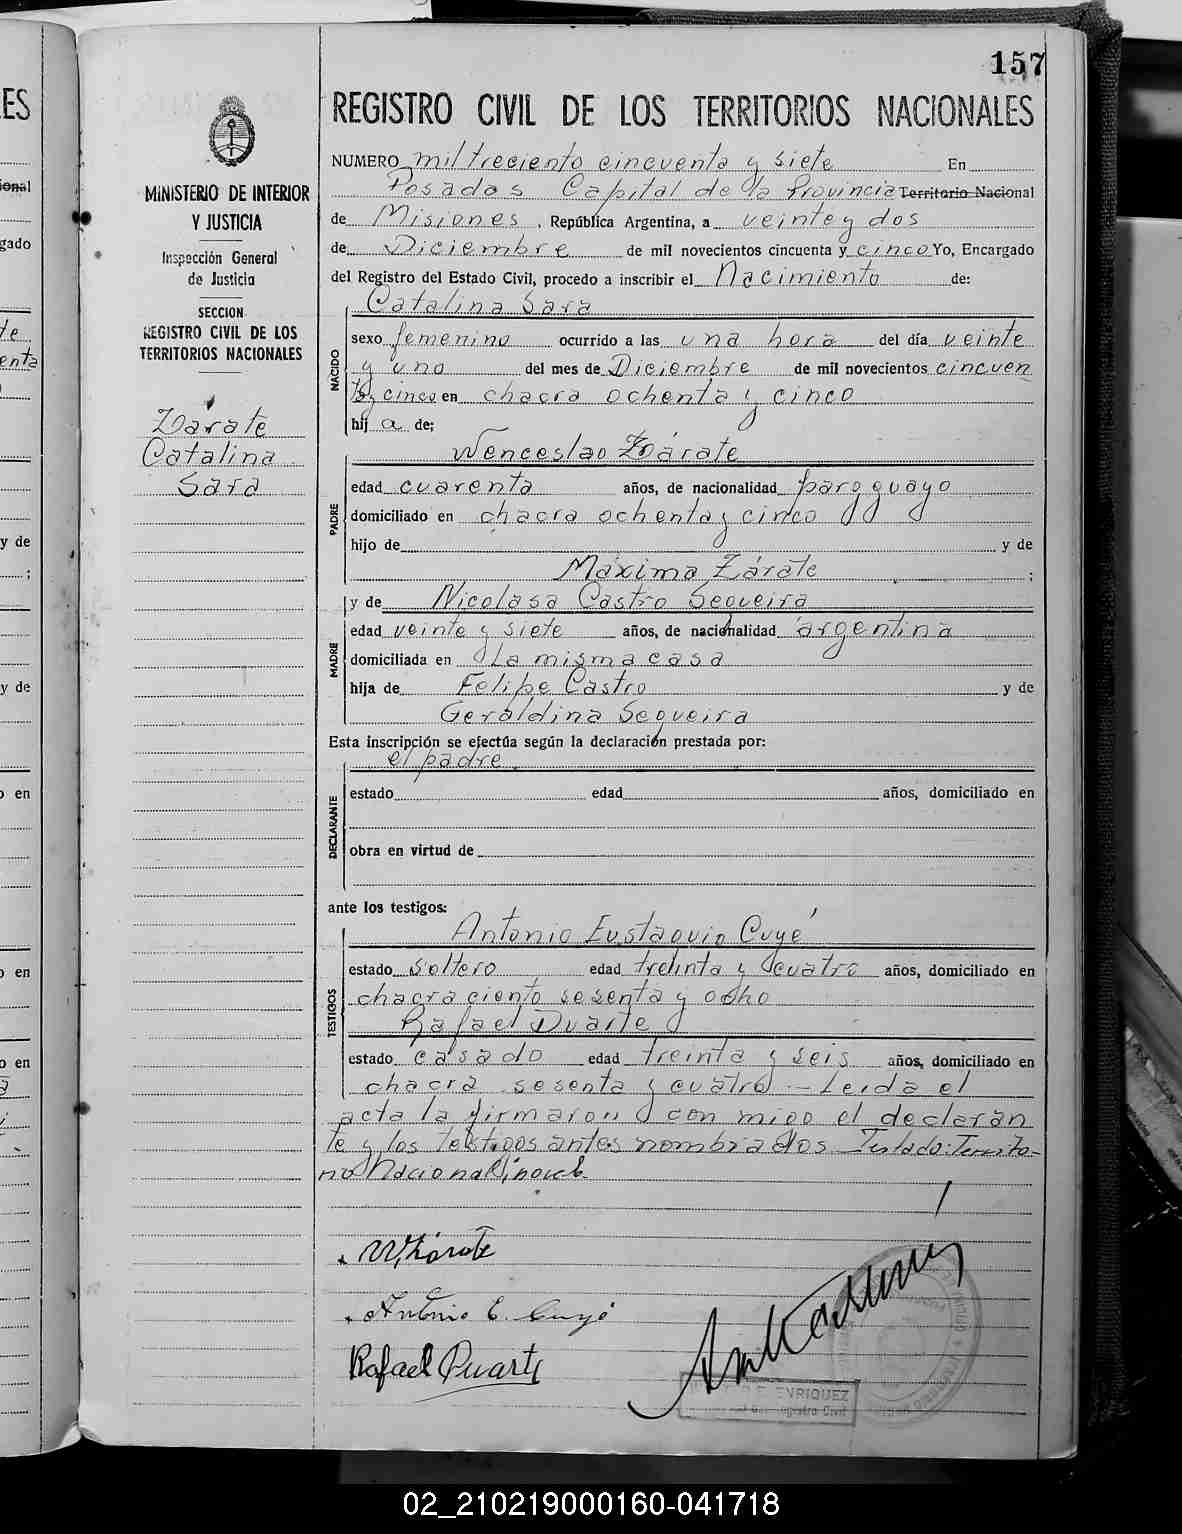 157
REGISTRO CIVIL DE LOS TERRITORIOS NACIONALES
MINISTERIO DE INTERIOR
Y JUSTICIA
Inspección General
de Justicia
SECCION
REGISTRO CIVIL DE LOS
TERRITORIOS NACIONALES
Zárate
Catalina
Sara
NUMERO mil treciento cincuenta y siete En
Posadas Capital de la Provincia Territorio Nacional
de Misiones, República Argentina, a veinte y dos
de Diciembre de mil novecientos cincuenta y cinco Yo, Encargado
del Registro del Estado Civil, procedo a inscribir el Nacimiento de:
Catalina Sara
NACIDO
sexo femenino ocurrido a las una hora del día veinte
y uno del mes de Diciembre de mil novecientos cincuen
ta y cinco en chacra ochenta y cinco
hij a de:
Wenceslao Zárate
PADRE
edad cuarenta años, de nacionalidad paraguayo
domiciliado en chacra ochenta y cinco
hijo de y de
Máxima Zárate ;
y de Nicolasa Castro Sequeira
MADRE
edad veinte y siete años, de nacionalidad argentina
domiciliada en la misma casa
hija de Felipe Castro y de
Geraldina Sequeira
Esta inscripción se efectúa según la declaración prestada por:
el padre.
DECLARANTE
estado edad años, domiciliado en
obra en virtud de
ante los testigos:
Antonio Eustaquio Cuyé
TESTIGOS
estado soltero edad treinta y cuatro años, domiciliado en
chacra ciento sesenta y ocho
Rafael Duarte
estado casado edad treinta y seis años, domiciliado en
chacra sesenta y cuatro - Leida el
acta la firmaron con migo el declaran
te y los testigos antes nombrados Testado: Territo-
rio Nacional,
WZárate
Antonio E. Cuyé
Rafael Duarte
E. ENRIQUEZ
Registro Civil
02_210219000160-041718